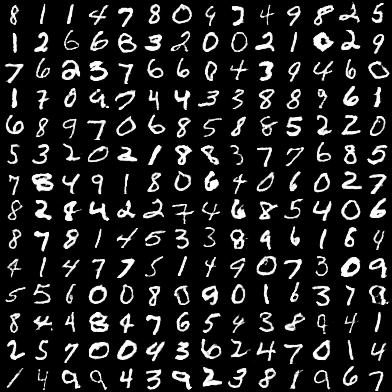 8 1 1 4 7 8 0 9 3 4 9 8 2 5
1 2 6 6 8 3 2 0 0 2 1 0 2 9
7 6 2 3 7 6 6 0 4 3 9 4 6 0
1 7 0 9 7 4 4 3 3 8 8 9 6 1
6 8 9 7 0 6 8 5 8 8 5 2 2 0
5 3 2 0 2 1 8 8 3 7 7 6 8 5
7 8 4 9 1 8 0 6 4 0 6 0 2 7
8 2 8 4 2 2 7 4 6 8 5 4 0 6
8 7 8 1 4 5 3 3 8 9 6 1 6 4
4 1 4 7 7 5 1 4 9 0 7 3 0 9
5 5 6 0 0 8 0 9 0 1 6 3 7 8
8 4 4 8 4 7 6 5 4 3 8 9 4 1
2 5 7 0 0 4 3 6 2 4 7 0 1 4
1 4 9 9 4 3 9 2 3 8 1 9 6 7